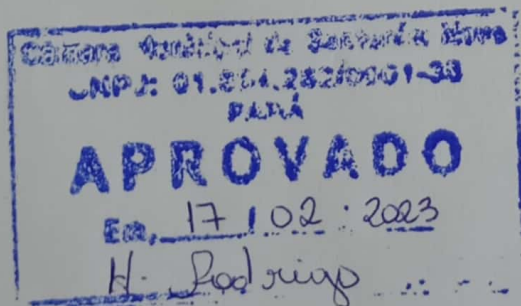 Câmara Municipal de Santarém Novo
CNPJ: 01.854.282/0001-38
PARÁ
APROVADO
Em, 17 / 02 · 2023
H. Rodrigo